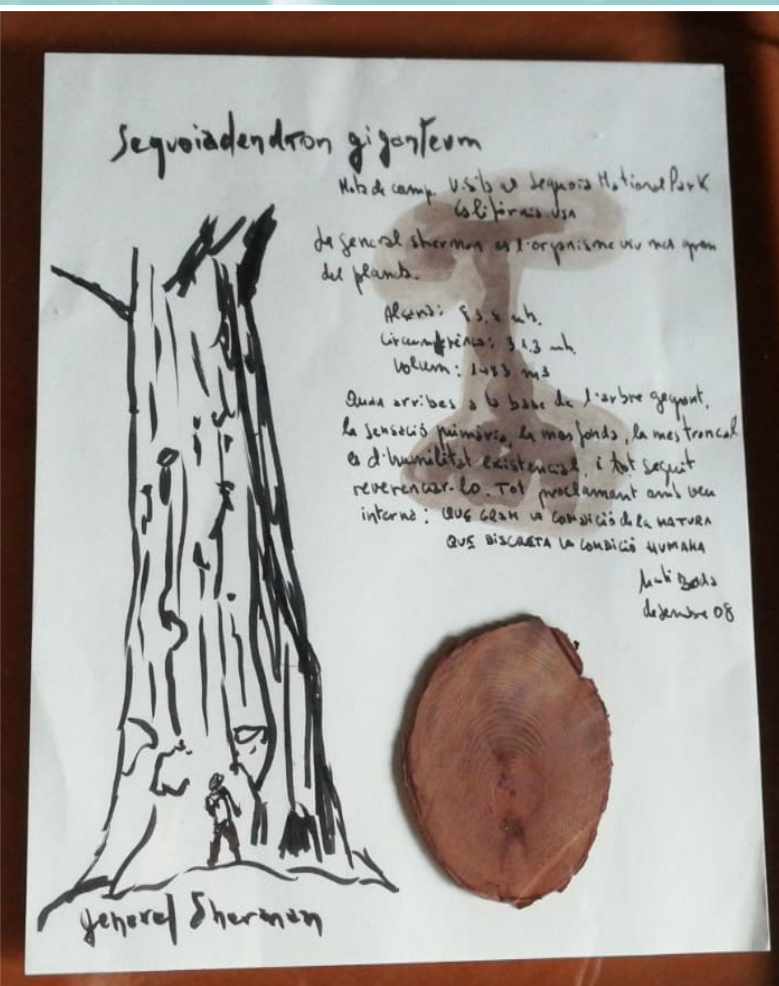 Sequoiadendron giganteum
Nota de camp. Visita al Sequoia National Park
Califòrnia. USA
La general sherman es l'organisme viu mes gran
del planeta.
Alçaria: 83,8 mts.
Circumferència: 31.3 mts.
Volum: 1483 m3
Quan arribes a la base de l'arbre gegant,
la sensació primària, la mes fonda, la mes troncal
es d'humilitat existencial, i tot seguit
reverenciar-lo. Tot proclamant amb veu
interna: QUE GRAN LA CONDICIÓ de la NATURA
QUE DISCRETA LA CONDICIÓ HUMANA
Martí Boada
desembre 08
general Sherman